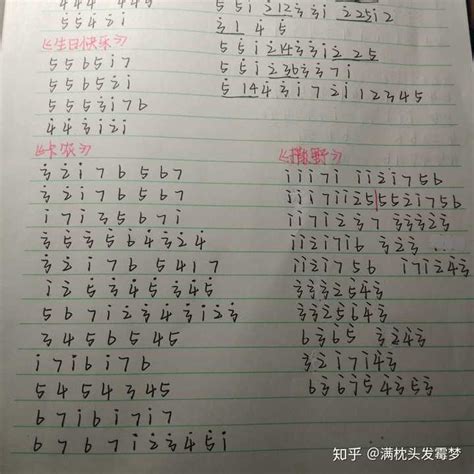 5 5 4 2̇ i
《生日快乐》
5 5 6 5 i 7
5 5 6 5 2̇ i
5 5 5̇ 3̇ i 7 6
4̇ 4̇ 3̇ i 2̇ i
《卡农》
3̇ 2̇ i 7 6 5 6 7
3̇ 2̇ i 7 6 5 6 7
i 7 i 3 5 6 7 i
3̇ 5̇ 3̇ 5̇ 6̇ 4̇ 3̇ 2̇ 4̇
3̇ 2̇ i 7 6 5 4 1 7
i 2̇ 5̇ 3̇ 4̇ 5̇ 3̇ 4̇ 5̇
5 6 7 i 2̇ 3̇ 4̇ 3̇ i 2̇ 3̇
3 4 5 6 5 4 5
i 7 i 6 i 7 6
5 4 5 4 3 4 5
6 7 i 6 i 7 i 7
6 7 6 7 i 2̇ 3̇ 4̇ 5̇ i
5 5 i 2̇ 1 2 3̇ 3̇ i 2̇ 2 5 i 2
3̇ 1 4 5
5 5 i 2̇ 1 4 3̇ 3̇ i 2̇ 2 5
5 5 i 2̇ 3 6 3̇ 3̇ 7 i
5 1 4 4̇ 3̇ i 7 2̇ i 1 2 3 4 5
《撒野》
i i i 7 i i i 2̇ i 7 5 6
i i i 7 i i 2̇ 5 5 5 2̇ i 7 5 6
i i 7 i 2̇ 3̇ 7 3̇ 3̇ 3̇ 2̇ 3̇
i i 2̇ i 7 i 6 3̇ 2̇ 3̇ ...
i i 2̇ i 7 5 6 i 7 i 2̇ 4̇ 3̇
3̇ 3̇ 3̇ 2̇ 5 4̇ 3̇
3̇ 3̇ 2̇ 5 6 4̇ 3̇
6 3̇ 6 5 3̇ 2̇ 4̇ 3̇
3̇ 2̇ i 7 i 4̇ 3̇
6 3̇ 6 i 5̇ 4̇ 3̇ 5̇ 3̇
知乎 @满枕头发霉梦